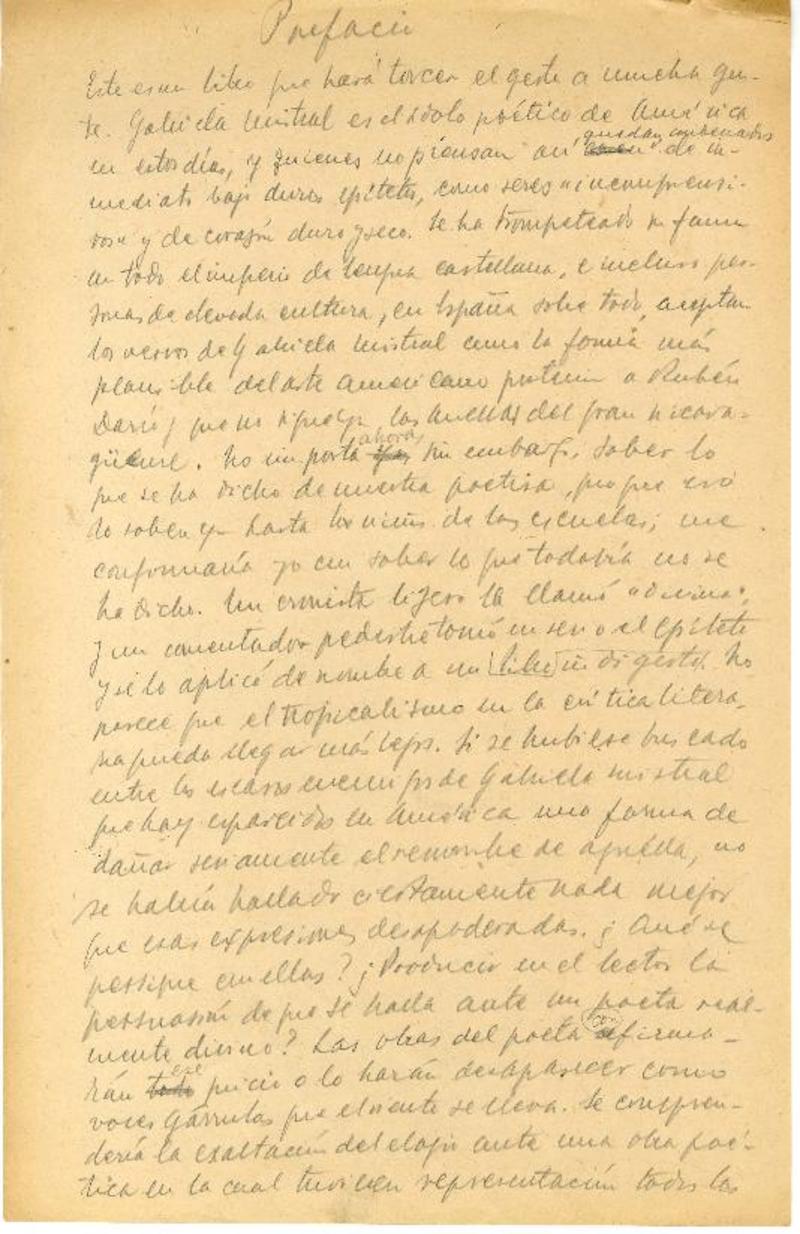 Prefacio
Este es un libro que hará torcer el gesto a mucha gen-
te. Gabriela Mistral es el ídolo poético de América
en estos días, y quienes no piensan así quedan condenados de in-
mediato bajo duros epítetos, como seres "incomprensi-
vos" y de corazón duro y seco. Se ha trompeteado su fama
en todo el imperio de lengua castellana, e incluso per-
sonas de elevada cultura, en España sobre todo, aceptan
los versos de Gabriela Mistral como la forma más
plausible del arte americano posterior a Rubén
Darío y que no sigue ya las huellas del gran nicara-
güense. No importa ahora, sin embargo, saber lo
que se ha dicho de nuestra poetisa, porque eso
lo saben ya hasta los niños de las escuelas; me
conformaría yo con saber lo que todavía no se
ha dicho. Un cronista ligero la llamó "divina",
y un comentador pedestre tomó en serio el epíteto
y se lo aplicó de nombre a un libro indigesto. No
parece que el tropicalismo en la crítica litera-
ria pueda llegar más lejos. Si se hubiese buscado
entre los escasos enemigos de Gabriela Mistral
que hay esparcidos en América una forma de
dañar seriamente el renombre de aquélla, no
se habría hallado ciertamente nada mejor
que esas expresiones desapoderadas. ¿Qué se
persigue con ellas? ¿Producir en el lector la
persuasión de que se halla ante un poeta real-
mente divino? Las obras del poeta afirma-
rán ese juicio o lo harán desaparecer como
voces gárrulas que el viento se lleva. Se compren-
dería la exaltación del elogio ante una obra poé-
tica en la cual tuviesen representación todos los